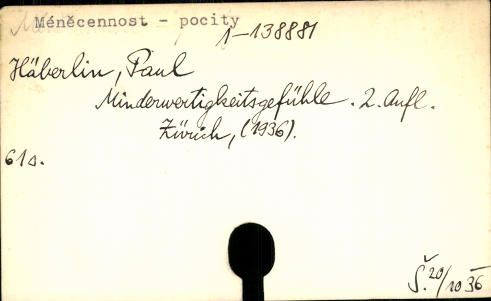 Méněcennost - pocity
1-138881
Häberlin, Paul
Minderwertigkeitsgefühle. 2. Aufl.
Zürich, (1936).
61 s.
Š. 20/10 36